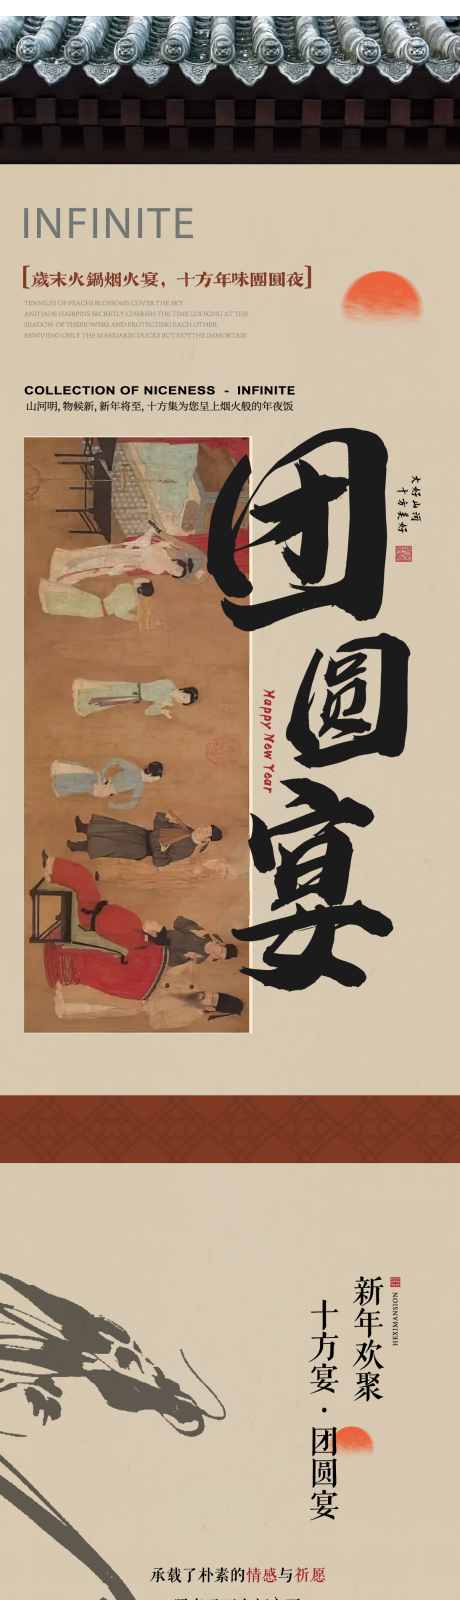 INFINITE
[歲末火鍋烟火宴，十方年味團圓夜]
TENNILES OF PEACHI BLOSSOMS COVER THE SKY
AND JADE HAIRPINS SECRETLY CHERISH THE TIME LOOKING AT THE
SHADOW OF THEFIOWERS AND PROTECTING EACH OTHER
ENWVIING ONLY THE MANDARIN DUCKS BUT NOTTHE IMMORTAIS
COLLECTION OF NICENESS - INFINITE
山河明, 物候新, 新年将至, 十方集为您呈上烟火般的年夜饭
团圆宴
大好山河
十方美好
Happy New Year
新年欢聚
HEXIMANSION
十方宴·团圆宴
承载了朴素的情感与祈愿